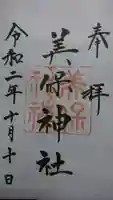 奉拝
美保神社
令和二年十月十日